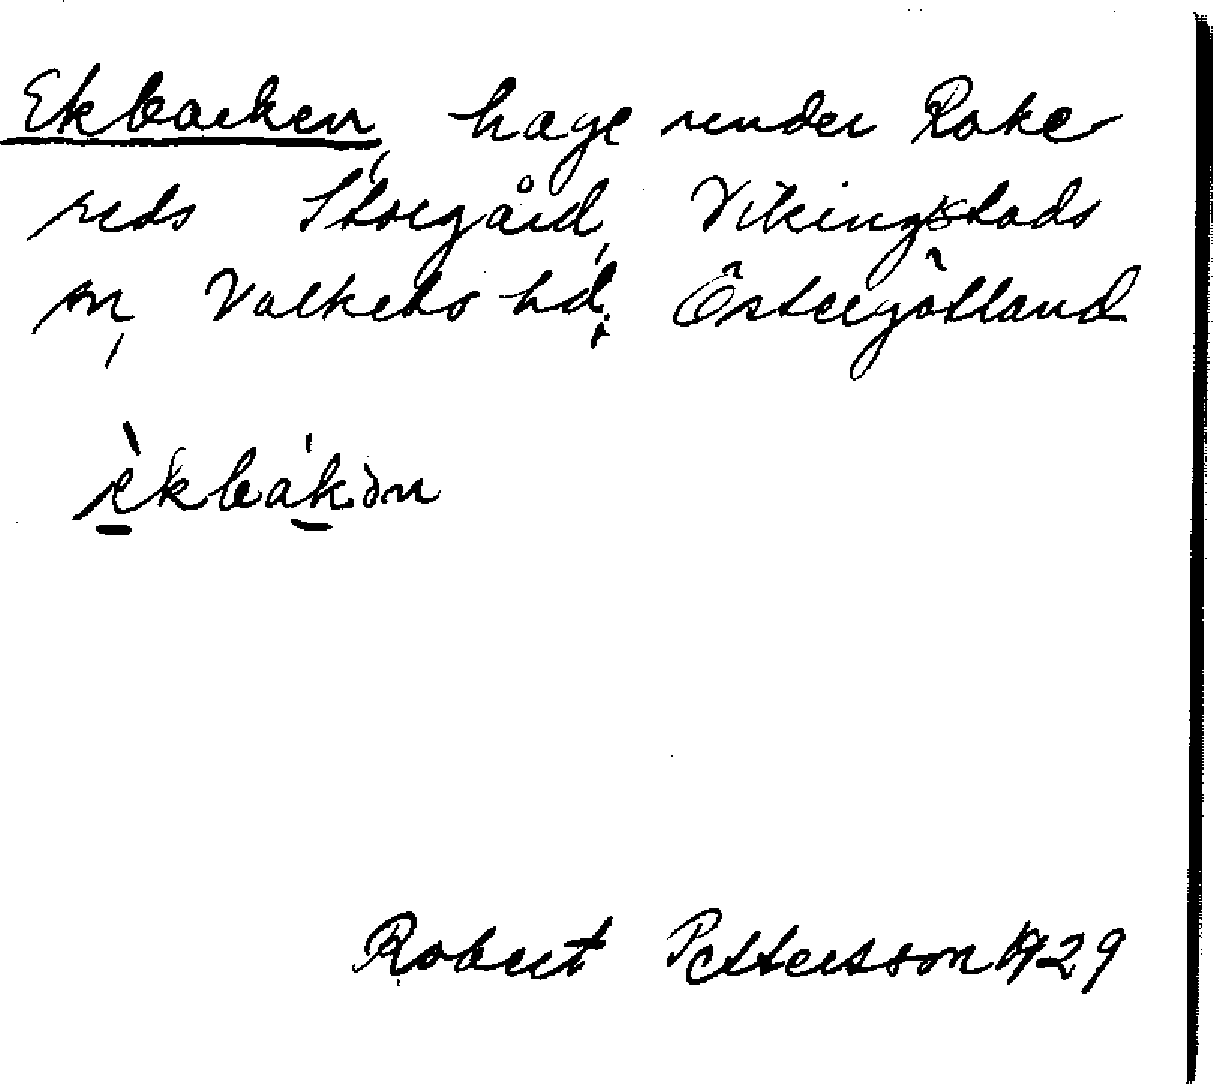 Ekbacken, hage under Rake
reds Storgård, Vikingstads
sn, Valkebo hd, Östergötland
èkbákən
Robert Pettersson 1929